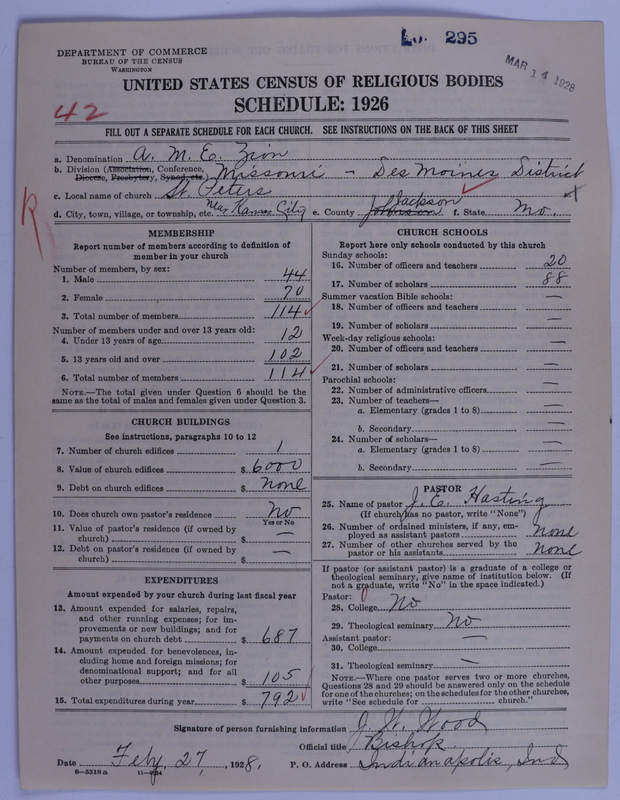 Lo. 295
MAR 14 1928
DEPARTMENT OF COMMERCE
BUREAU OF THE CENSUS
WASHINGTON
UNITED STATES CENSUS OF RELIGIOUS BODIES
SCHEDULE: 1926
42
FILL OUT A SEPARATE SCHEDULE FOR EACH CHURCH. SEE INSTRUCTIONS ON THE BACK OF THIS SHEET
a. Denomination A. M. E. Zion
b. Division (Association, Conference, Diocese, Presbytery, Synod, etc.) Missouri - Des Moines District
c. Local name of church St. Peters
R
d. City, town, village, or township, etc. near Kansas City e. County Johnson Jackson f. State Mo.
MEMBERSHIP
Report number of members according to definition of
member in your church
Number of members, by sex:
1. Male 44
2. Female 70
3. Total number of members 114
Number of members under and over 13 years old:
4. Under 13 years of age 12
5. 13 years old and over 102
6. Total number of members 114
NOTE.—The total given under Question 6 should be
same as the total of males and females given under Question 3.
CHURCH BUILDINGS
See instructions, paragraphs 10 to 12
7. Number of church edifices 1
8. Value of church edifices $ 6000
9. Debt on church edifices $ none
10. Does church own pastor's residence No
Yes or No
11. Value of pastor's residence (if owned by
church) $ —
12. Debt on pastor's residence (if owned by
church) $ —
EXPENDITURES
Amount expended by your church during last fiscal year
13. Amount expended for salaries, repairs,
and other running expenses; for im-
provements or new buildings; and for
payments on church debt $ 687
14. Amount expended for benevolences, in-
cluding home and foreign missions; for
denominational support; and for all
other purposes $ 105
15. Total expenditures during year $ 792
CHURCH SCHOOLS
Report here only schools conducted by this church
Sunday schools:
16. Number of officers and teachers 20
17. Number of scholars 88
Summer vacation Bible schools:
18. Number of officers and teachers —
19. Number of scholars —
Week-day religious schools:
20. Number of officers and teachers —
21. Number of scholars —
Parochial schools:
22. Number of administrative officers —
23. Number of teachers—
a. Elementary (grades 1 to 8) —
b. Secondary —
24. Number of scholars—
a. Elementary (grades 1 to 8) —
b. Secondary —
PASTOR
25. Name of pastor J. E. Hasting
(If church has no pastor, write "None")
26. Number of ordained ministers, if any, em-
ployed as assistant pastors none
27. Number of other churches served by the
pastor or his assistants none
If pastor (or assistant pastor) is a graduate of a college or
theological seminary, give name of institution below. (If
not a graduate, write "No" in the space indicated.)
Pastor:
28. College No
29. Theological seminary No
Assistant pastor:
30. College —
31. Theological seminary —
NOTE.—Where one pastor serves two or more churches,
Questions 28 and 29 should be answered only on the schedule
for one of the churches; on the schedules for the other churches,
write "See schedule for church."
Signature of person furnishing information J. W. Wood
Official title Bishop
Date Feby. 27, 1928. P. O. Address Indianapolis, Ind
8—5318a 11—9124